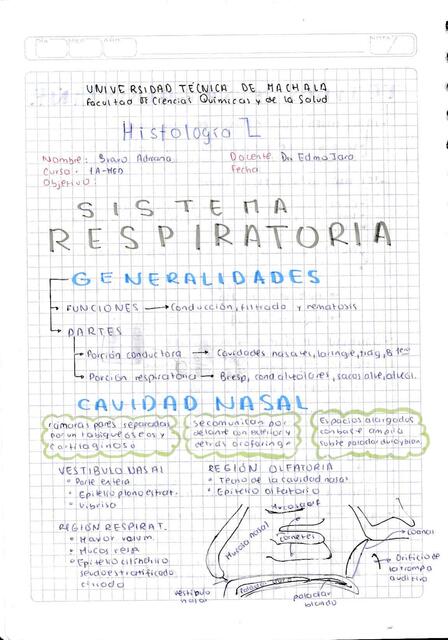 UNIVERSIDAD TÉCNICA DE MACHALA
Facultad de Ciencias Químicas y de la Salud
Histología I
Nombre: Bravo Adriana Docente: Dr. Edmo Jara
Curso: 1A-MED Fecha
Objetivo:
SISTEMA
RESPIRATORIA
GENERALIDADES
FUNCIONES → Conducción, filtrado y hematosis
PARTES
Porción conductora → Cavidades nasales, laringe, traq, B
Porción respiratoria → Bresp, cond alveolares, sacos alve,
CAVIDAD NASAL
Camaras pares separadas
por un tabique oseo y
cartilaginoso
Se comunican por
delante con exterior y
detrás orofaringe
Espacios alargados
con base amplia
sobre paladar duro y blan.
VESTIBULO NASAL
• Parte externa
• Epitelio plano estrat.
• Vibrisa
REGIÓN OLFATORIA
• Techo de la cavidad nasal
• Epitelio olfatorio
REGIÓN RESPIRAT.
• Mayor volum.
• Mucos resp
• Epitelio cilindrico
seudoestratificado
ciliado
Mucosa olf
Mucosa nasal
cornetes
coanas
Orificio de
la trompa
auditiva
vestibulo
nasal
paladar
blando